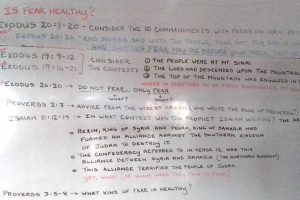 IS FEAR HEALTHY?
EXODUS 20:1-20 - CONSIDER THE 10 COMMANDMENTS WITH FOCUS ON VERSE
EXODUS 20:20 "AND MOSES SAID UNTO THE PEOPLE, FEAR NOT, FOR GOD IS
AND THAT HIS FEAR MAY BE BEFORE YOUR FACES,
EXODUS 19:9-12 CONSIDER THE PEOPLE WERE AT MT. SINAI
EXODUS 19:16-21 THE CONTEXT: THE LORD HAD DESCENDED UPON THE MOUNTAIN
THE TOP OF THE MOUNTAIN WAS ENGULFED IN
EXODUS 20:20 → DO NOT FEAR, ONLY FEAR
WHAT? WHAT?
PROVERBS 2:7 - ADVICE FROM THE WISEST WHO WROTE THE BOOK OF PROVERBS
ISAIAH 8:12-14 - IN WHAT CONTEXT WAS THE PROPHET ISAIAH WRITING? THE
REZIN, KING OF SYRIA AND KING OF SAMARIA HAD
FORMED AN ALLIANCE AGAINST THE SOUTHERN KINGDOM
OF JUDAH TO DESTROY IT.
THE CONFEDERACY REFERRED TO IN VERSE 12, WAS THIS
ALLIANCE BETWEEN SYRIA AND SAMARIA (THE NORTHERN KINGDOM)
THIS ALLIANCE TERRIFIED THE PEOPLE OF JUDAH
YES, WHAT OR WHOM WERE THEY TO FEAR?
PROVERBS 3:5-8 → WHAT KIND OF FEAR IS HEALTHY?